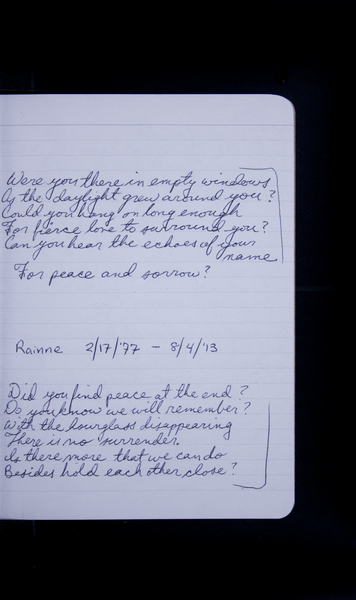 Were you there in empty windows
As the daylight grew around you?
Could you hang on long enough
For fierce love to surround you?
Can you hear the echoes of your
name
For peace and sorrow?
Rainne 2/17/77 - 8/4/13
Did you find peace at the end?
Do you know we will remember?
With the hourglass disappearing
There is no surrender.
Is there more that we can do
Besides hold each other close?